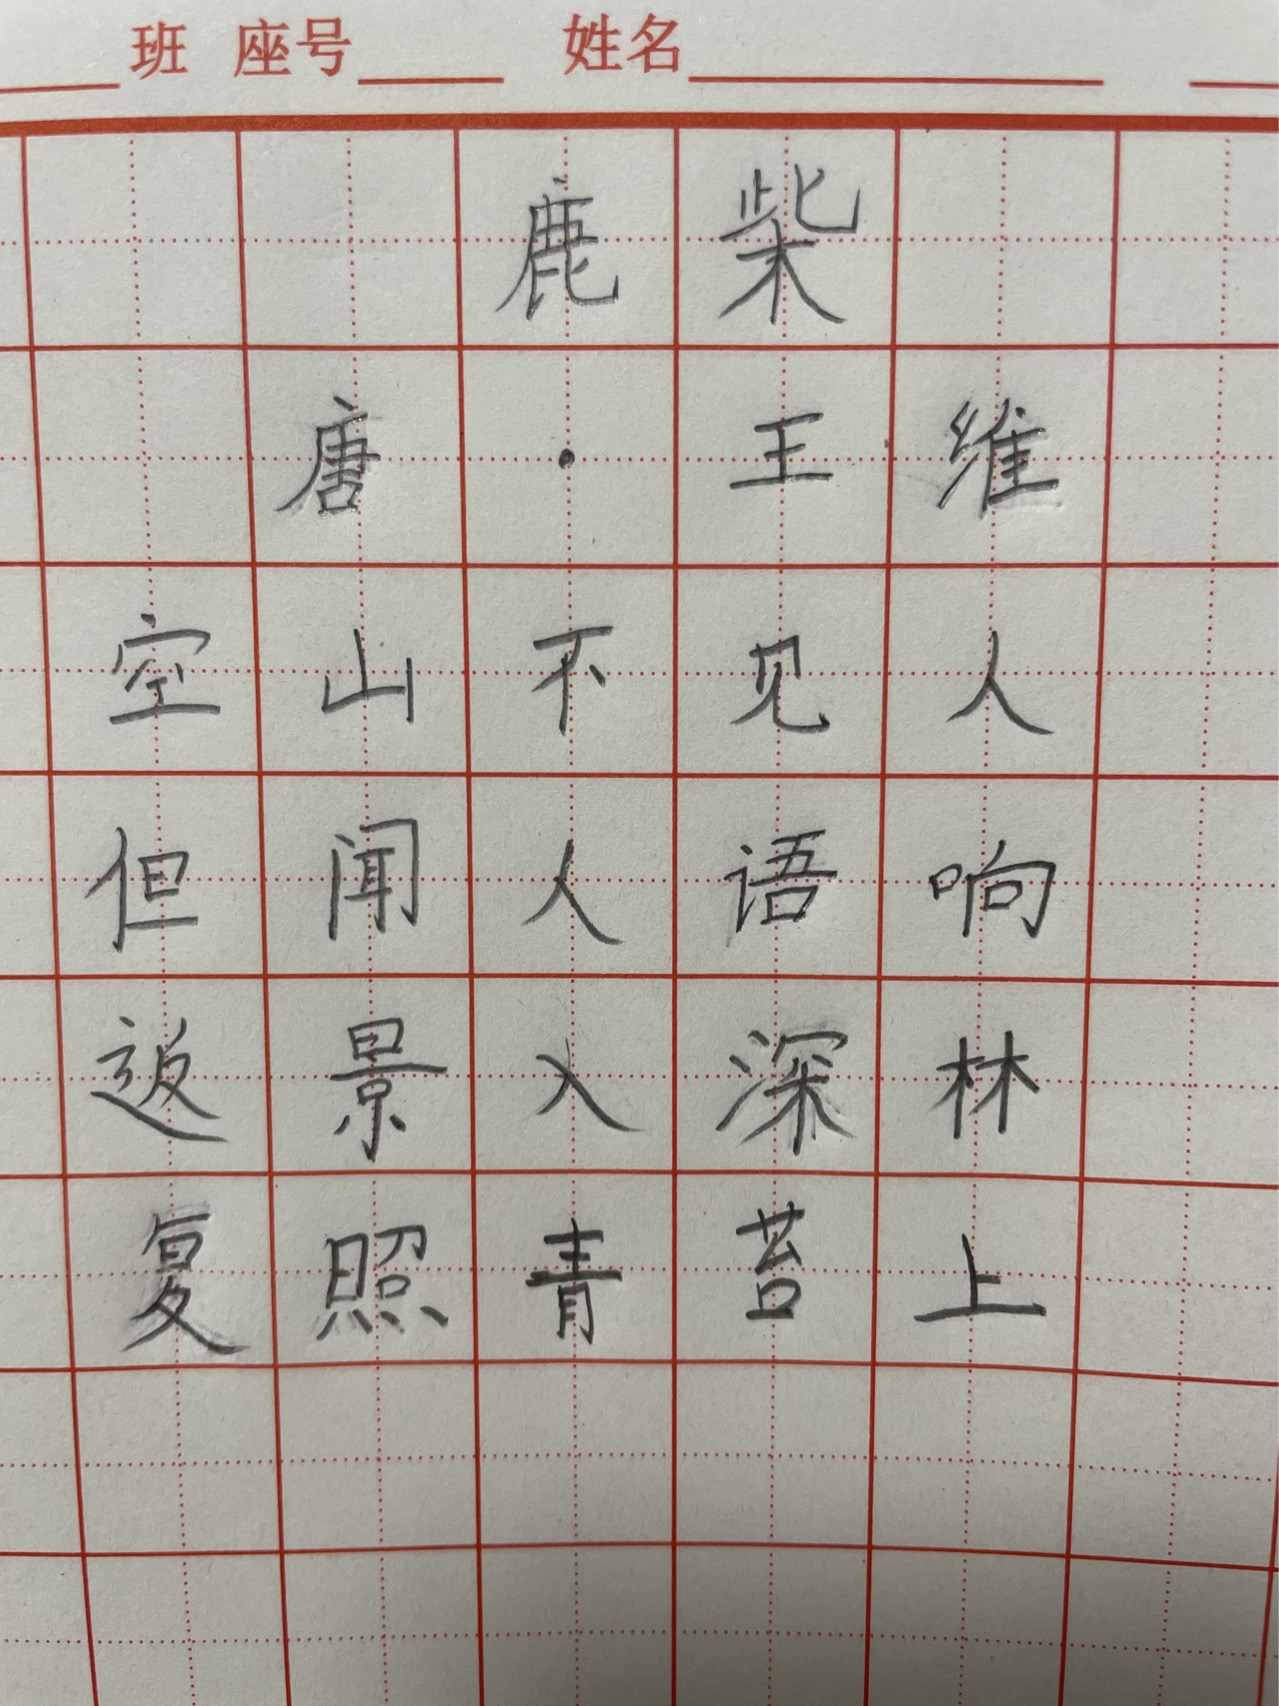 班 座号 姓名
鹿柴
唐·王维
空山不见人
但闻人语响
返景入深林
复照青苔上